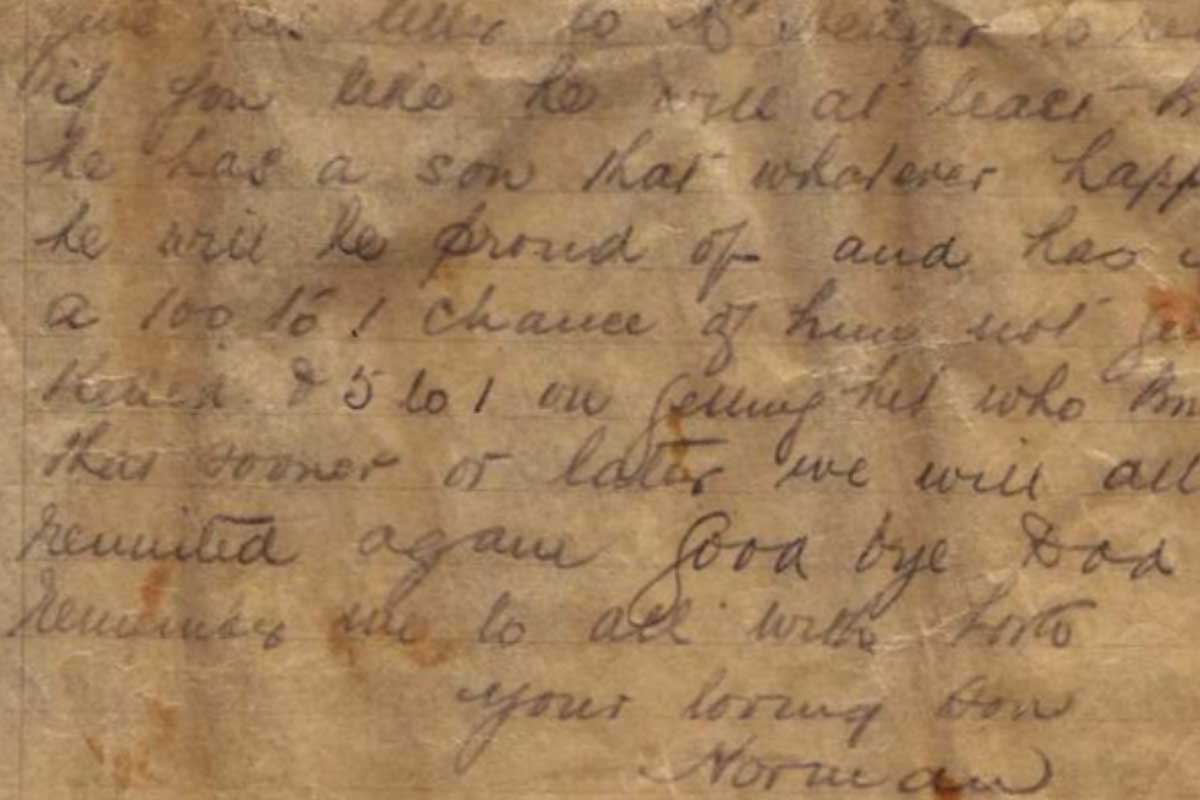 letter to Mr to
if you like he will at least
he has a son that whatever happ
he will be proud of and has
a 100 to 1 chance of him not
killed & 5 to 1 on getting hit who
that sooner or later we will all
reunited again good bye Dad
Remember me to all with
your loving son
Norman